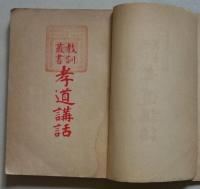 教訓叢書
孝道講話